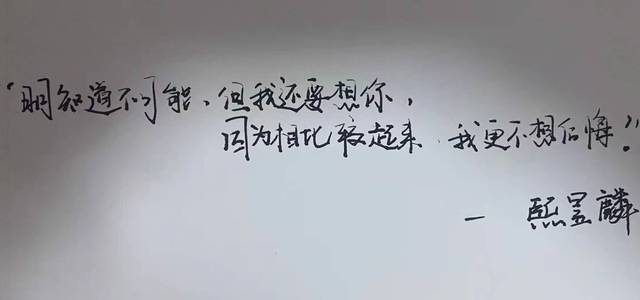 “明知道不可能、但我还要想你，
因为相比较起来 我更不想后悔。”
— 熙昱麟